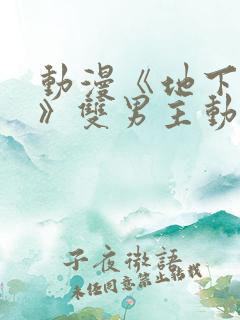 動漫《地下
》雙男主動
子夜微語
未任同意禁止轉載